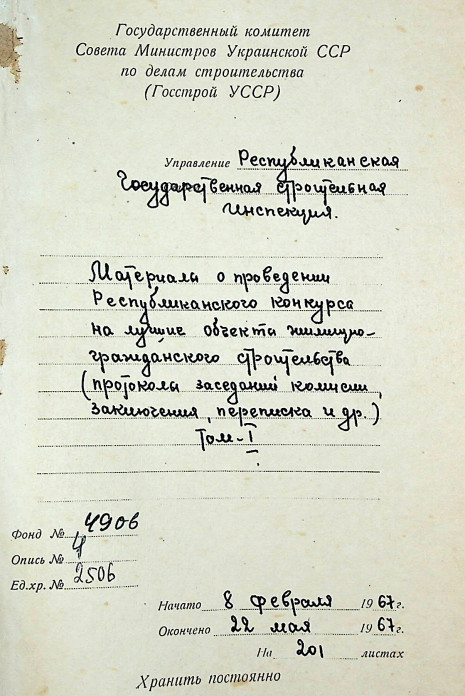 Государственный комитет
Совета Министров Украинской ССР
по делам строительства
(Госстрой УССР)
Управление Республиканская
Государственная строительная
инспекция.
Материалы о проведении
Республиканского конкурса
на лучшие объекты жилищно-
гражданского строительства
(протоколы заседаний комиссии,
заключения, переписка и др.)
Том-I
Фонд № 4906
Опись № 4
Ед.хр. № 2506
Начато 8 февраля 1967 г.
Окончено 22 мая 1967 г.
На 201 листах
Хранить постоянно